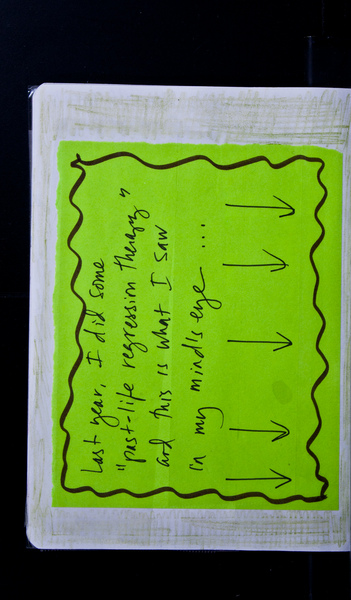 Last year, I did some
"past-life regression therapy"
and this is what I saw
in my mind's eye ...